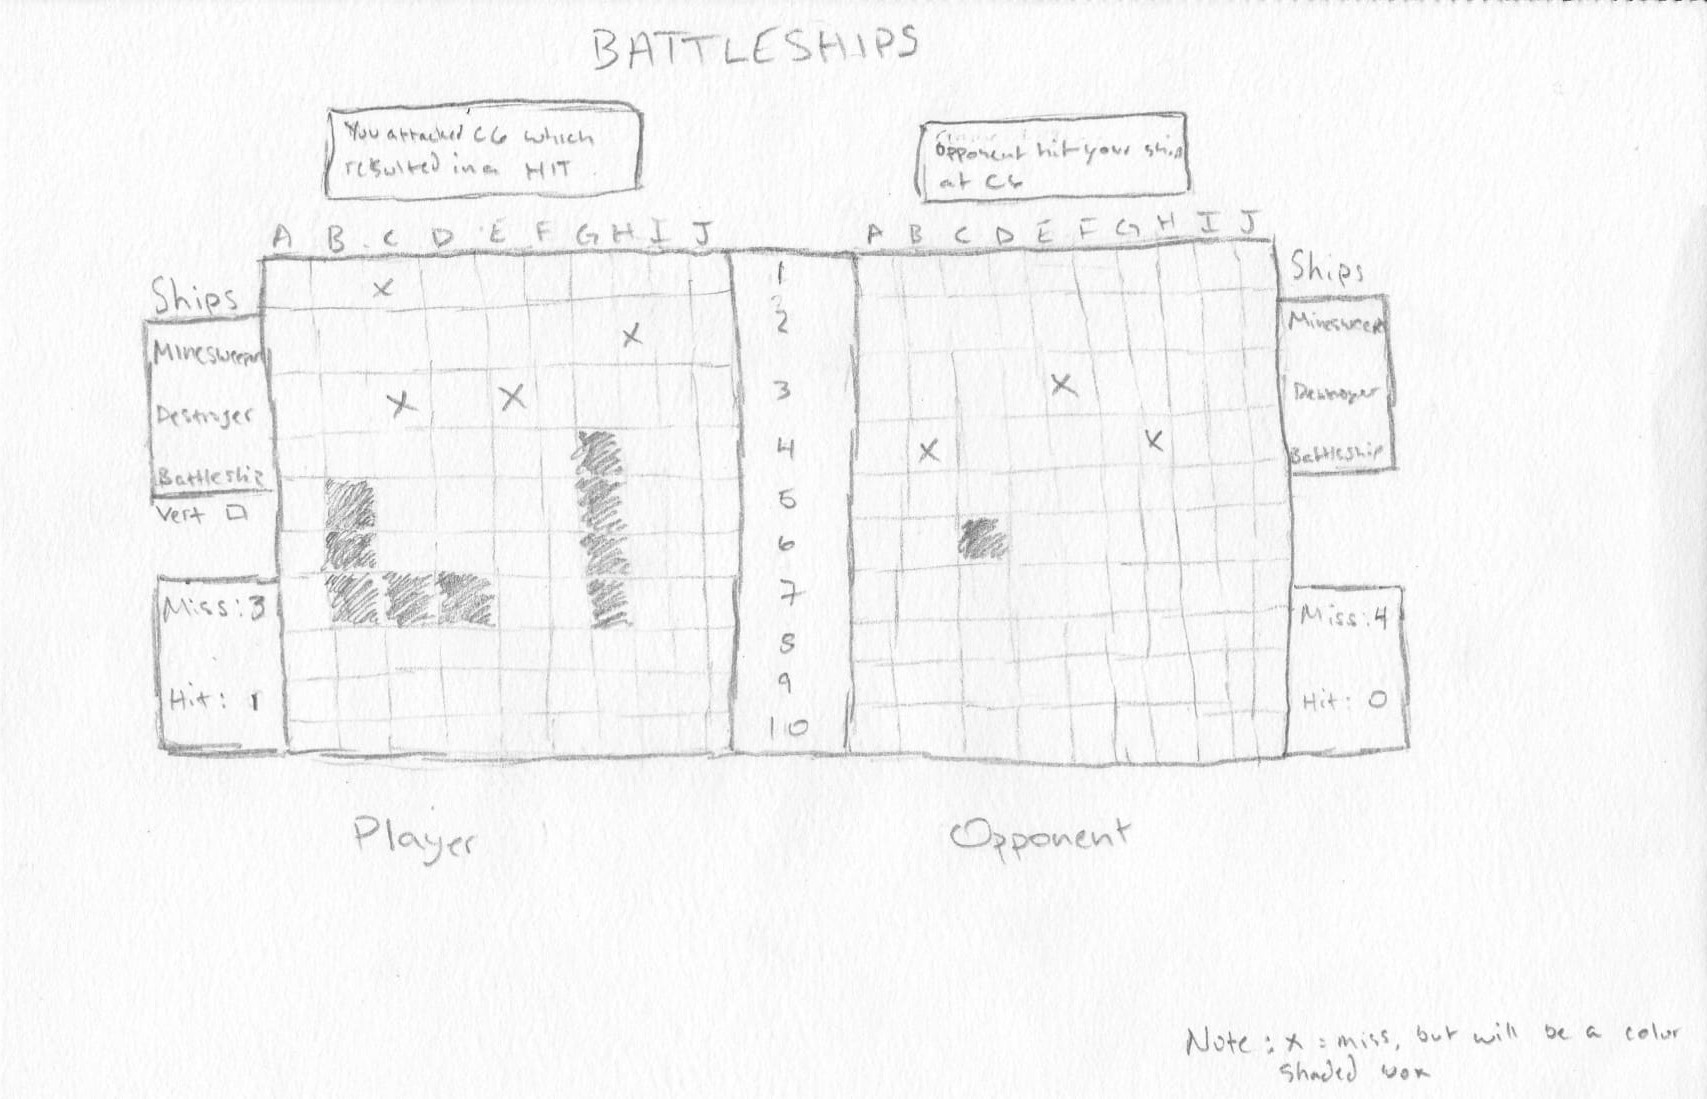 BATTLESHIPS
You attacked C6 which
resulted in a HIT
Opponent hit your ship
at C6
A B C D E F G H I J
A B C D E F G H I J
Ships
Minesweeper
Destroyer
Battleship
Vert
Miss: 3
Hit: 1
1
2
3
4
5
6
7
8
9
10
Ships
Minesweep
Destroyer
Battleship
Miss: 4
Hit: 0
X
X
X
X
X
X
X
Player
Opponent
Note: x = miss, but will be a color
shaded box